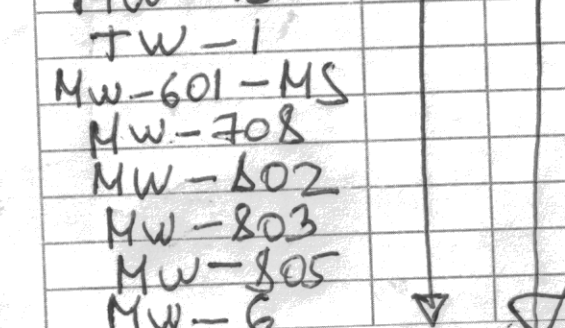 TW-1
MW-601-MS
MW-708
MW-802
MW-803
MW-805
MW-6